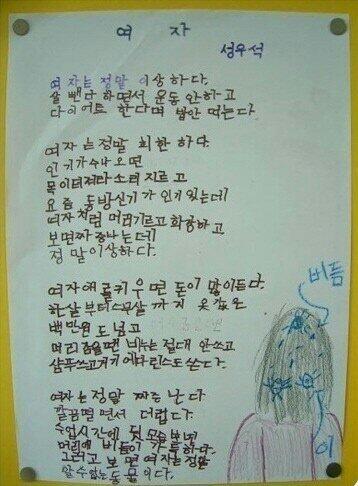 여자
성우석
여자는 정말 이상하다.
살 뺀다 하면서 운동 안하고
다이어트 한다며 밥만 먹는다
여자는 정말 희한 하다.
인기가수 나오면
목이 터져라 소리 지르고
요즘 동방신기가 인기 있는데
여자처럼 머리기르고 화장하고
보면 짜증나는데
정말이상하다.
여자애를 키우면 돈이 많이든다.
한살부터 스무살 까지 옷값은
백만원도 넘고
머리 감을땐 비누는 절대 안쓰고
샴푸쓰고 거기에다 린스도 쓴다.
여자는 정말 짜증난다
깔끔떨면서 더럽다.
수업시간에 뒷모습 보면
머리에 비듬이 가득하다.
그러고 보면 여자는 정말
알수없는 동물이다.
비듬
이